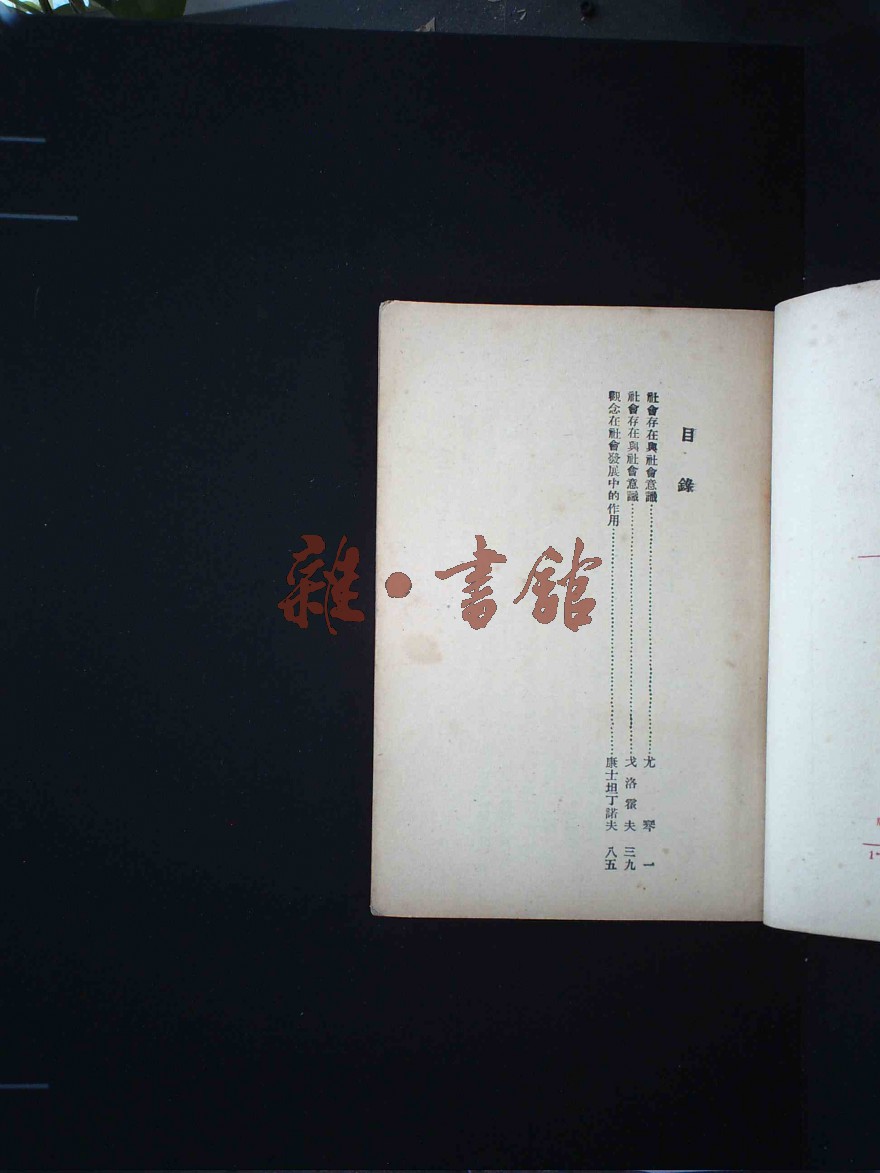 目錄
社會存在與社會意識……尤琴 一
社會存在與社會意識……戈洛霍夫 三九
觀念在社會發展中的作用……康士坦丁諾夫 八五
雜·書館